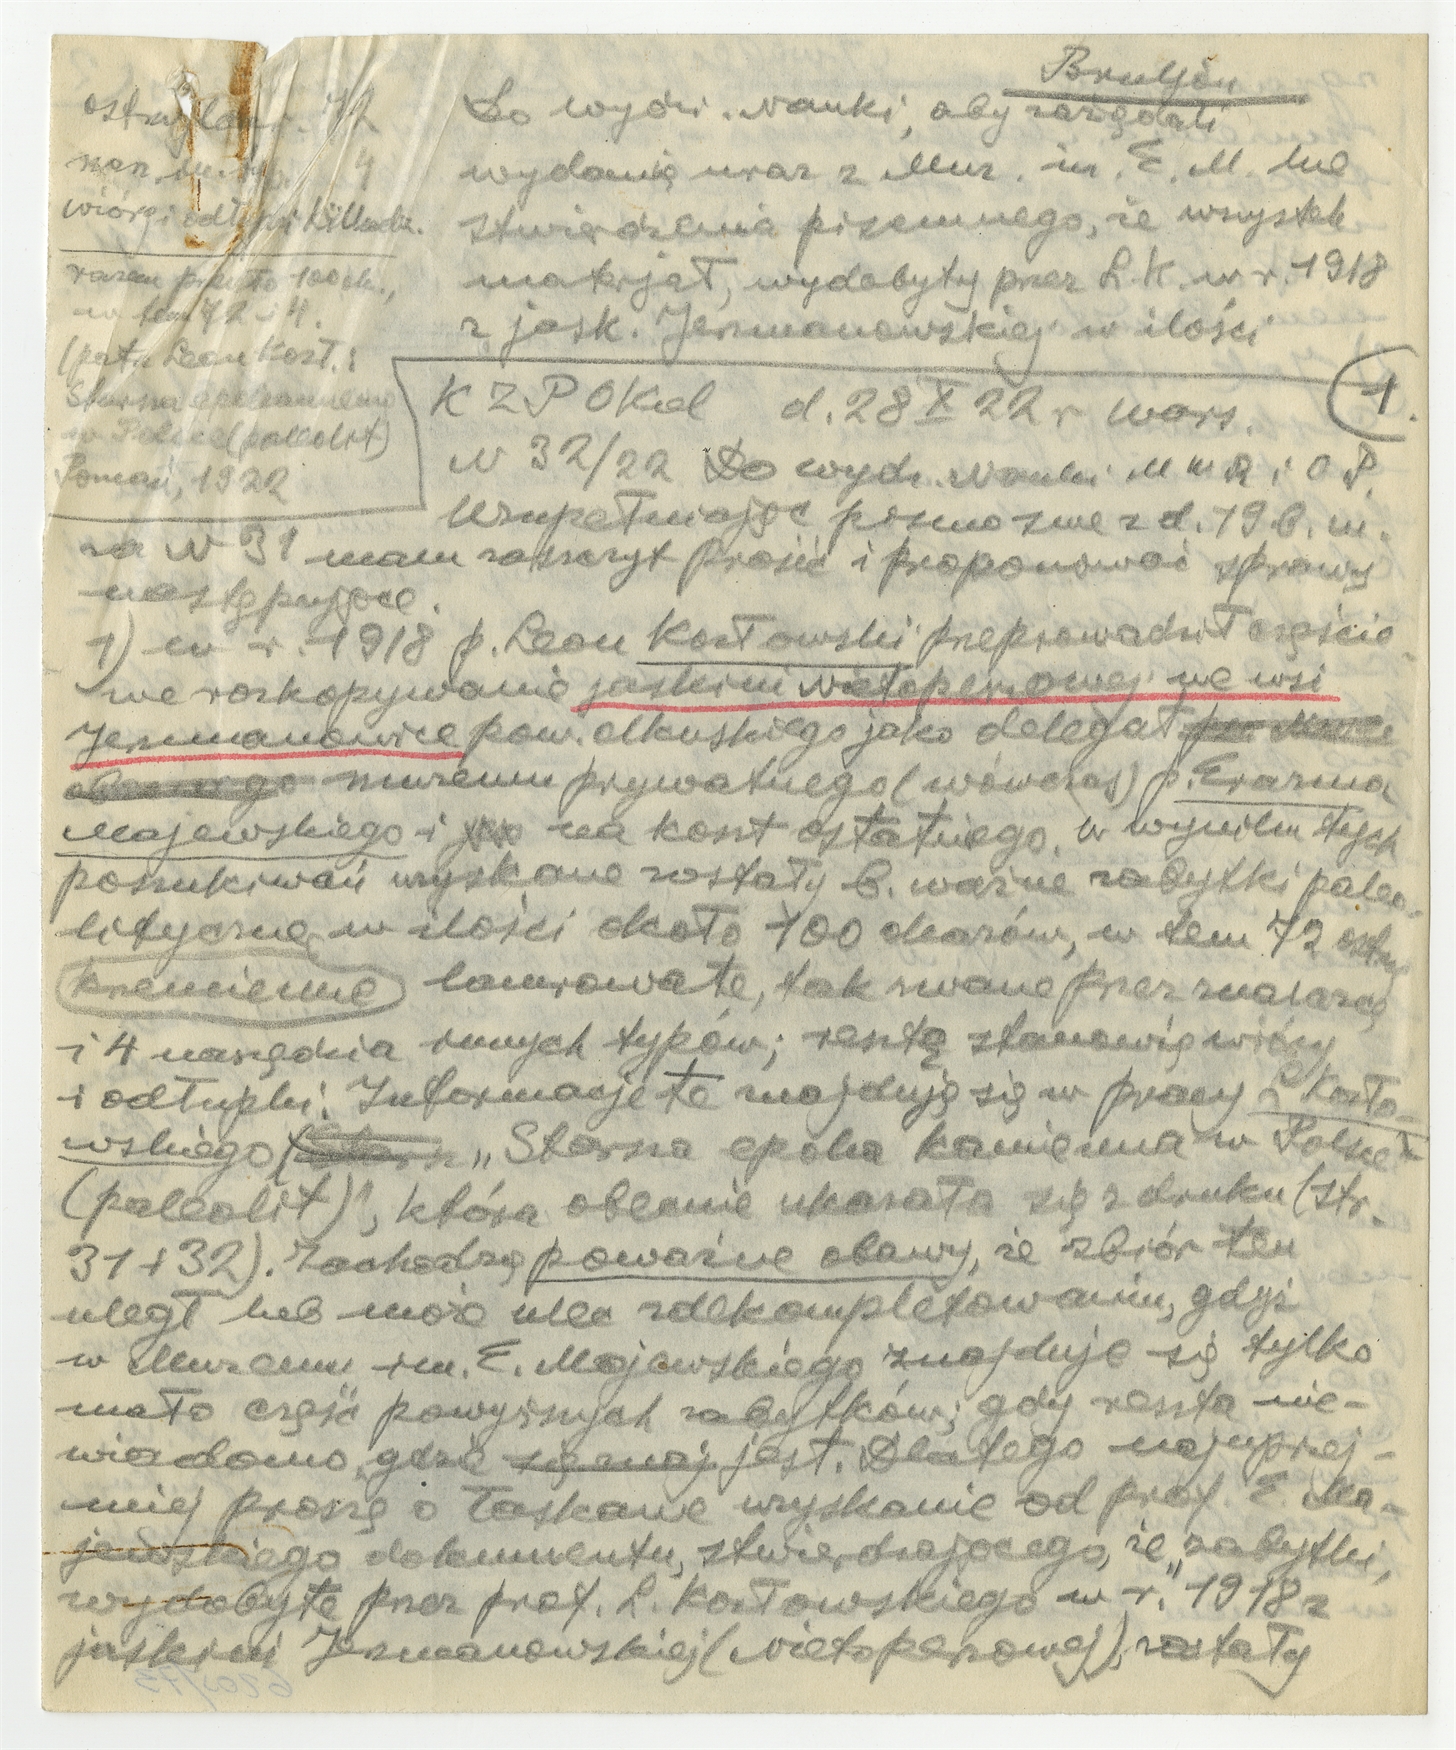 Bruljon
Do wydz. Nauki, aby zażądali
wydania wraz z Muz. im. E. M.
stwierdzenia pisemnego, że wszystek
materjał, wydobyty przez L. K. w r. 1918
z jask. Jerzmanowskiej w ilości
72
4
wióry i odłupki
razem przeszło 100 ok.,
w tem 72 i 4.
(patrz Leon Kozł.:
Starsza epoka kamienna
w Polsce (paleolit)
Poznań, 1922
1.
K Z P O Kiel d. 28 X 22 r Wars.
N 32/22 Do wydz. Nauki M W R i O P.
Uzupełniając pismo swe z d. 19 b. m.
za N 31 mam zaszczyt prosić i proponować sprawy
następujące.
1) w r. 1918 p. Leon Kozłowski przeprowadził częścio-
we rozkopywanie jaskini Nietoperzowej we wsi
Jerzmanowice pow. olkuskiego jako delegat
muzeum prywatnego (wówczas) p. Erazma
Majewskiego i na koszt ostatniego. W wyniku tych
poszukiwań uzyskane zostały b. ważne zabytki paleo-
lityczne w ilości około 100 okazów, w tem 72 ostrza
krzemienne laurowate, tak zwane przez znalazcę
i 4 narzędzia innych typów; resztę stanowią wióry
i odłupki. Informacje te znajdują się w pracy L. Kozło-
wskiego „Starsza epoka kamienna w Polsce
(paleolit)", która obecnie ukazała się z druku (str.
31 + 32). Zachodzą poważne obawy, że zbiór ten
uległ lub może ulec zdekompletowaniu, gdyż
w Muzeum im. E. Majewskiego znajduje się tylko
mała część powyższych zabytków; gdy reszta nie-
wiadomo gdzie się znaj jest. Dlatego najuprzej-
miej proszę o łaskawe uzyskanie od prof. E. Ma-
jewskiego dokumentu, stwierdzającego, że „zabytki,
wydobyte przez prof. L. Kozłowskiego w r. 1918 z
jaskini Jerzmanowskiej (Nietoperzowej), zostały